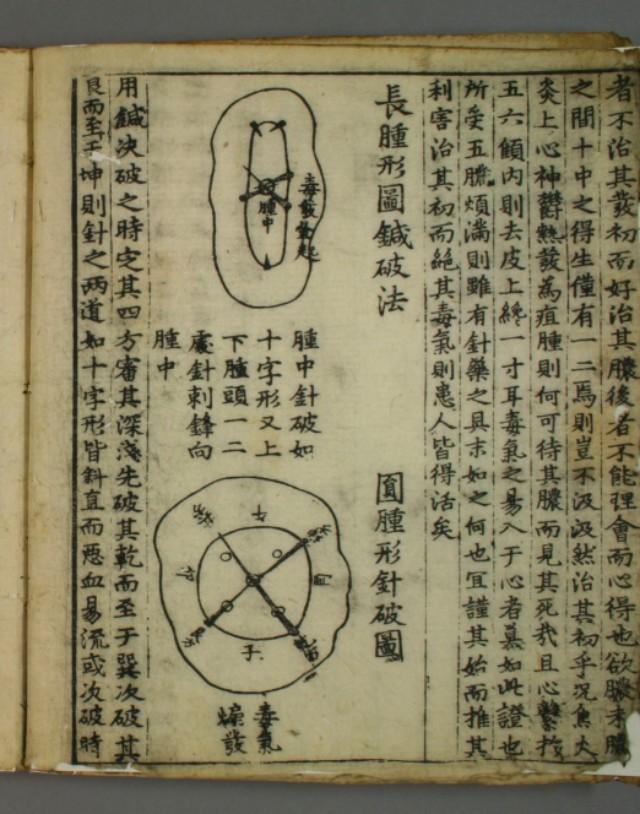 者不治其發初而好治其膿後者不能理會而心得也欲膿未膿
之間十中之得生僅有一二焉則豈不汲汲然治其初乎況焦大
炎上心神欝熱發為疽腫則何可待其膿而見其死哉且心繫於
五六傾內則去皮上纔一寸耳毒氣之易入于心者莫如此證也
所受五膲煩滿則雖有針藥之具末如之何也宜謹其始而推其
利害治其初而絕其毒氣則患人皆得活矣
長腫形圖鍼破法
毒發動起
腫中
腫中針破如
十字形又上
下腫頭一二
處針刺鋒向
腫中
圓腫形針破圖
午
卯
酉
子
毒氣
蝙發
用鍼决破之時定其四方審其深淺先破其乾而至于巽次破其
艮而至于坤則針之兩道如十字形皆斜直而惡血易流或次破時